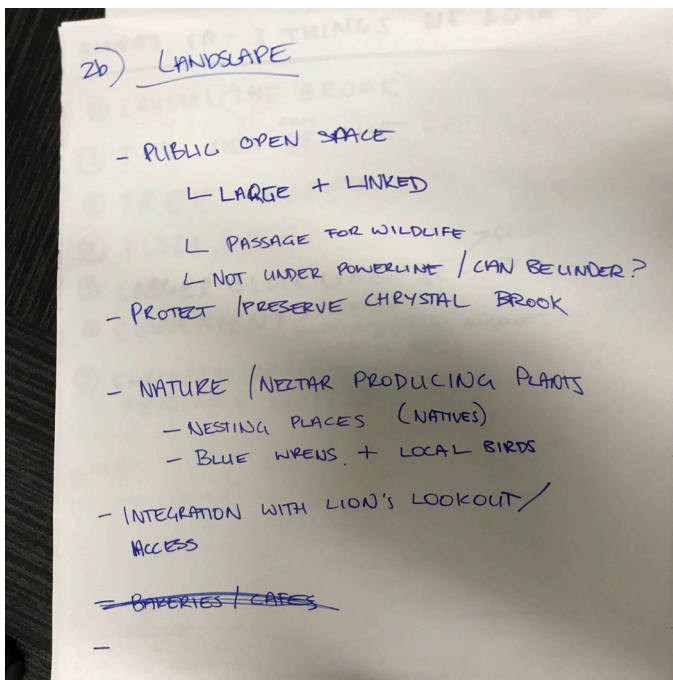 2b) LANDSCAPE
- PUBLIC OPEN SPACE
└ LARGE + LINKED
└ PASSAGE FOR WILDLIFE
└ NOT UNDER POWERLINE / CAN BE UNDER?
- PROTECT / PRESERVE CHRYSTAL BROOK
- NATURE / NECTAR PRODUCING PLANTS
- NESTING PLACES (NATIVES)
- BLUE WRENS. + LOCAL BIRDS
- INTEGRATION WITH LION'S LOOKOUT /
ACCESS
- BAKERIES / CAFES
-